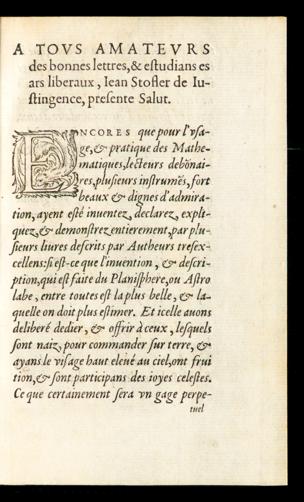 A TOVS AMATEVRS
des bonnes lettres, & eſtudians es
ars liberaux, Iean Stofler de Iu-
ſtingence, preſente Salut.
ENCORES que pour l'vſa-
ge, & pratique des Mathe-
matiques, lecteurs debōnai-
res, pluſieurs inſtrumēs, fort
beaux & dignes d'admira-
tion, ayent eſté inuentez, declarez, expli-
quez, & demonſtrez entierement, par plu-
ſieurs liures deſcrits par Autheurs treſex-
cellens: ſi eſt-ce que l'inuention, & deſcri-
ption, qui eſt faite du Planiſphere, ou Aſtro
labe, entre toutes eſt la plus belle, & la-
quelle on doit plus eſtimer. Et icelle auons
deliberé dedier, & offrir à ceux, leſquels
ſont naiz, pour commander ſur terre, &
ayans le viſage haut eleué au ciel, ont frui
tion, & ſont participans des ioyes celeſtes.
Ce que certainement ſera vn gage perpe-
tuel